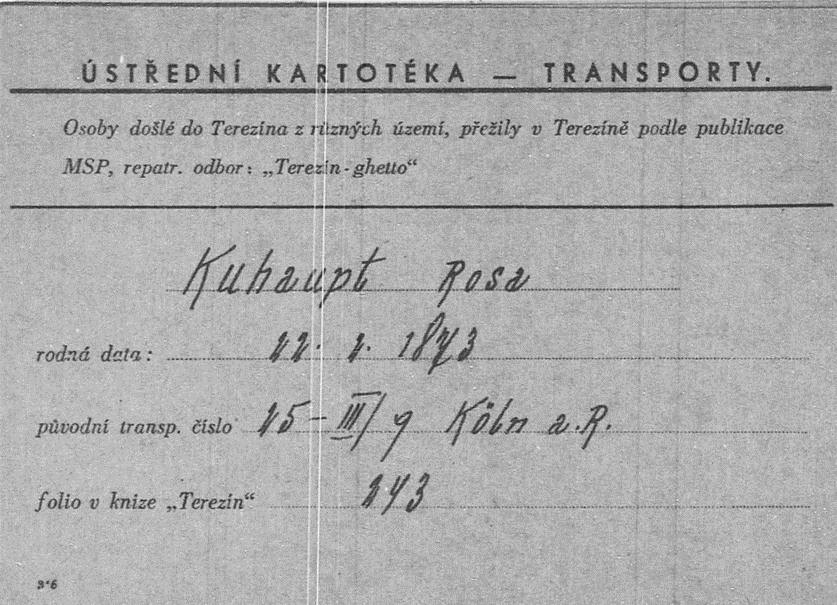 ÚSTŘEDNÍ KARTOTÉKA — TRANSPORTY.
Osoby došlé do Terezína z různých území, přežily v Terezíně podle publikace
MSP, repatr. odbor: „Terezín-ghetto“
Kuhaupt Rosa
rodná data: 22. 2. 1873
původní transp. číslo 25 – III/9 Köln a.R.
folio v knize „Terezín“ 243